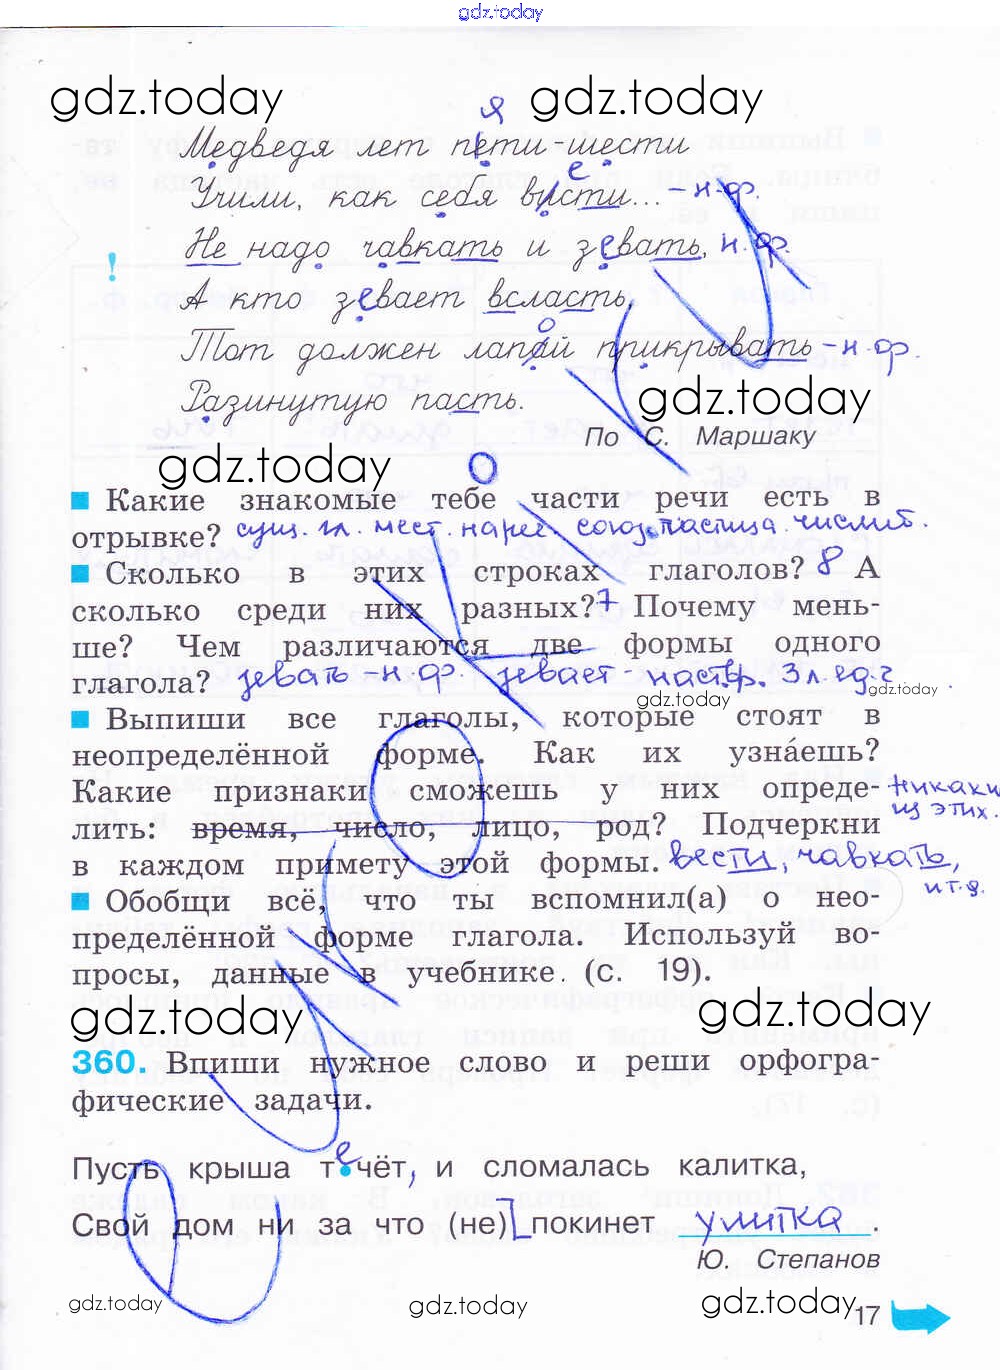 gdz.today
gdz.today gdz.today
я
Медведя лет пети-шести
е
Учили, как себя висти... – н.ф.
Не надо чавкать и зевать, н.ф.
! А кто зевает всласть,
о
Тот должен лапай прикрывать – н.ф.
Разинутую пасть.
gdz.today
По С. Маршаку
gdz.today
Какие знакомые тебе части речи есть в
отрывке? сущ. гл. мест. нареч. союз. частица. числит.
Сколько в этих строках глаголов? 8 А
сколько среди них разных? 7 Почему мень-
ше? Чем различаются две формы одного
глагола? зевать – н.ф. зевает – наст.вр. 3 л. ед.ч.
gdz.today gdz.today
Выпиши все глаголы, которые стоят в
неопределённой форме. Как их узна́ешь?
Какие признаки сможешь у них опреде- никакие
лить: время, число, лицо, род? Подчеркни из этих.
в каждом примету этой формы. вести, чавкать,
и т.д.
Обобщи всё, что ты вспомнил(а) о нео-
пределённой форме глагола. Используй во-
просы, данные в учебнике (с. 19).
gdz.today gdz.today
360. Впиши нужное слово и реши орфогра-
фические задачи.
Пусть крыша течёт, и сломалась калитка,
Свой дом ни за что (не) покинет улитка
Ю. Степанов
gdz.today gdz.today gdz.today
17